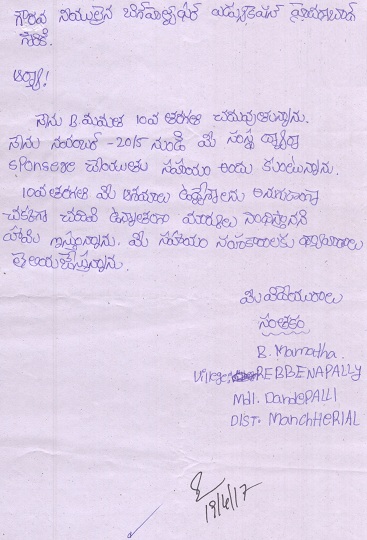 గౌరవ నీయులైన బిగ్‌హెల్ప్ ఫర్ ఎడ్యుకేషన్ హైదరాబాద్
గారికి.
ఆర్యా!
నేను B. మమత 10వ తరగతి చదువుతున్నాను.
నేను నవంబర్ - 2015 నుండి మీ సంస్థ ద్వారా
sponser చేయుతూ సహాయం అందు కుంటున్నాను.
10వ తరగతి మీ ఆశయాలు ఉద్దేశ్యాలను అనుగుణంగా
చక్కగా చదివి ఉన్నతంగా మార్కులు సాధిస్తానని
హామి ఇస్తున్నాను. మీ సహాయ సహకారాలకు ధన్యవాదాలు
తెలియజేస్తున్నాను.
మీ విధేయురాలు
సంతకం
B. Mamatha.
Village REBBENAPALLY
Mdl. DandePALLI
DIST. ManchHERIAL
19/4/17